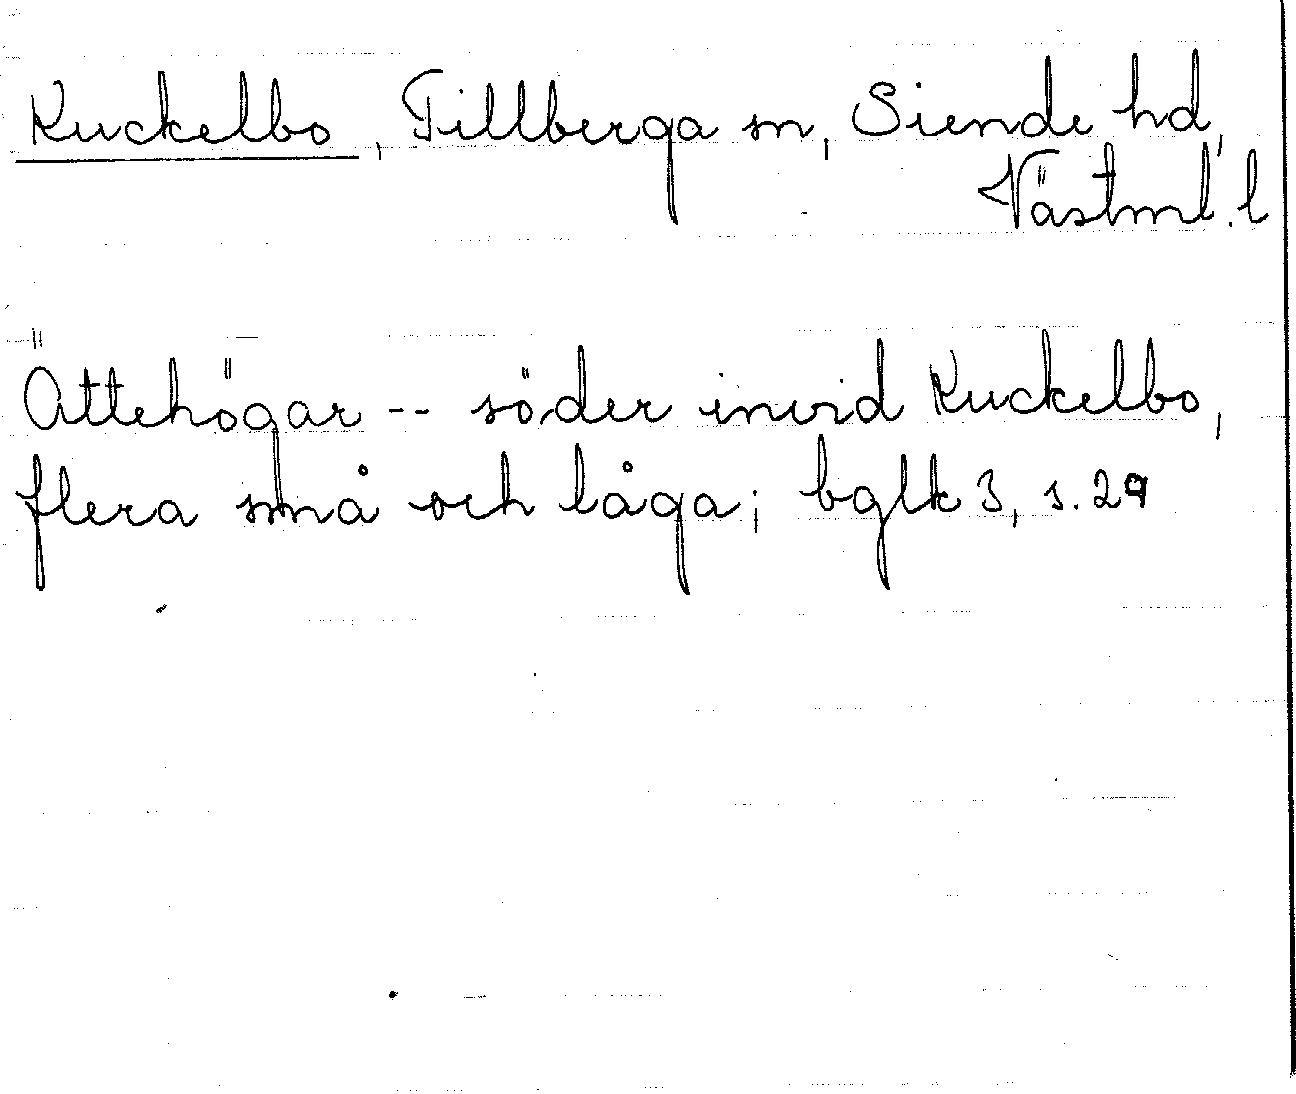 Kuckelbo, Tillberga sn, Siende hd,
Västml. l
Ättehögar -- söder invid Kuckelbo,
flera små och låga; bglk 3, s. 29